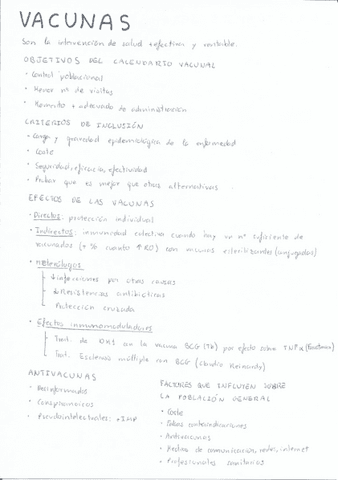 VACUNAS
Son la intervención de salud + efectiva y rentable.
OBJETIVOS DEL CALENDARIO VACUNAL
· Control poblacional
· Menor nº de visitas
· Momento + adecuado de administración
CRITERIOS DE INCLUSIÓN
· Carga y gravedad epidemiológica de la enfermedad
· Coste
· Seguridad, eficacia, efectividad
· Probar que es mejor que otras alternativas
EFECTOS DE LAS VACUNAS
· Directos: protección individual
· Indirectos: inmunidad colectiva cuando hay un nº suficiente de
vacunados (+ % cuanto ↑ R0) con vacunas esterilizantes (conjugadas)
· Heterólogos
↓ infecciones por otras causas
↓ Resistencias antibióticas
Protección cruzada
· Efectos inmunomoduladores
Trat. de DM1 con la vacuna BCG (TB) por efecto sobre TNF α
Trat. Esclerosis múltiple con BCG
ANTIVACUNAS
· Desinformados
· Conspiranoicos
· Pseudointelectuales:
FACTORES QUE INFLUYEN SOBRE
LA POBLACIÓN GENERAL
· Coste
· Falsas contraindicaciones
· Antivacunas
· Medios de comunicación, redes, internet
· Profesionales sanitarios